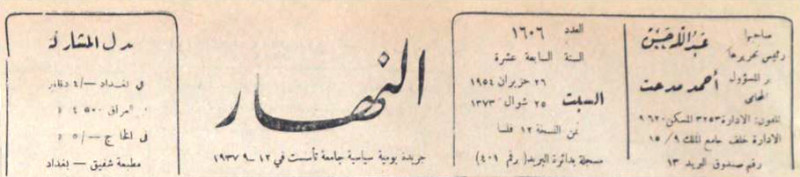 صاحبها
عبدالله حسن
رئيس تحريرها
و المسؤول
أحمد مدحت
المحامي
تلفون: الادارة ٣٢٥٣ المسكن ٩٦٢٠
الادارة خلف جامع الملك ٩/ ١٥
رقم صندوق البريد ١٣
العدد ١٦٠٦
السنة السابعة عشرة
السبت
٢٦ حزيران ١٩٥٤
٢٥ شوال ١٣٧٣
ثمن النسخة ١٢ فلسا
مسجلة بدائرة البريد (رقم ٤٠١)
النهار
جريدة يومية سياسية جامعة تأسست في ١٢ـ ٩ ١٩٣٧
بدل المشاركة
في بغداد —/٤ دنانير
العراق ٥٠٠ ٤
في الخارج —/ ٥
مطبعة شفيق - بغداد